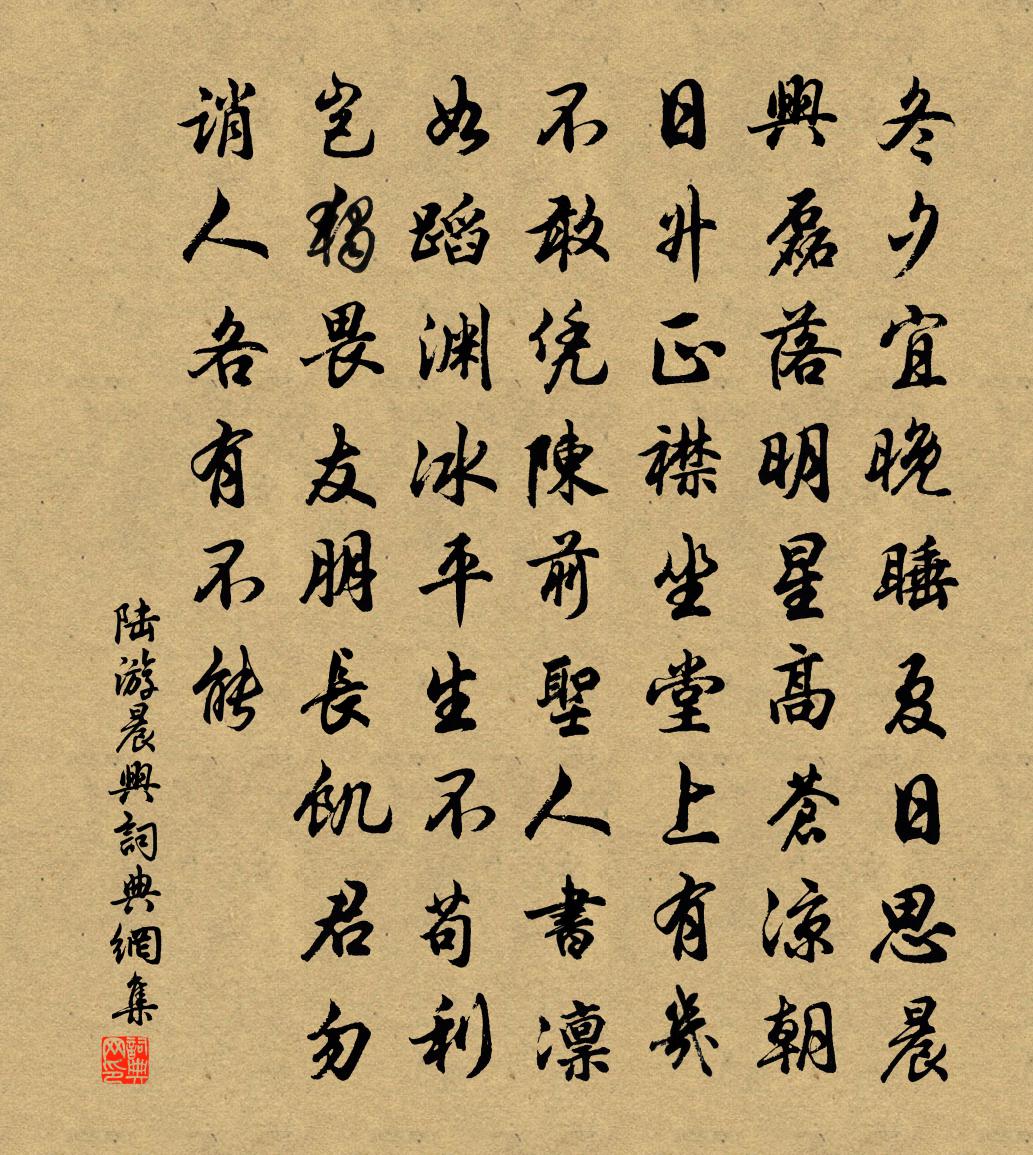 冬夕宜晚睡夏日思晨
興磊落明星高蒼涼朝
日升正襟坐堂上有幾
不敢凭陳前聖人書凛
如蹈渊冰平生不苟利
岂獨畏友朋長飢君勿
誚人各有不能
陆游晨興詞典網集
詞典网印